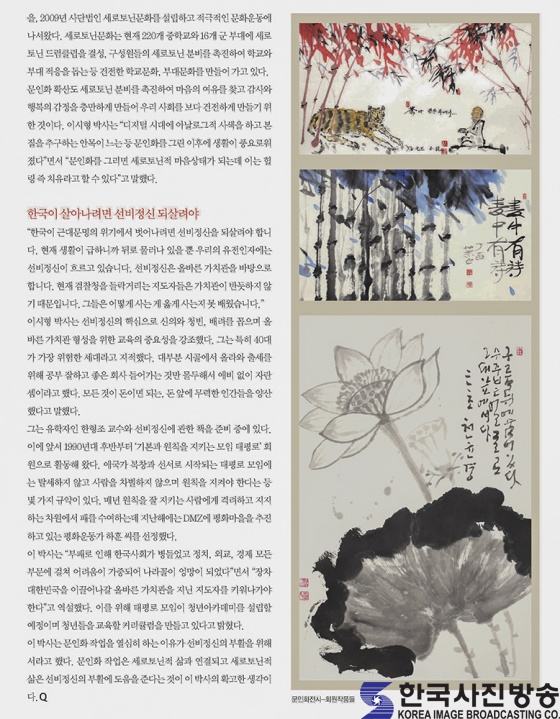 을, 2009년 사단법인 세로토닌문화를 설립하고 적극적인 문화운동에
나서왔다. 세로토닌문화는 현재 220개 중학교와 16개 군 부대에 세로
토닌 드럼클럽을 결성, 구성원들의 세로토닌 분비를 촉진하여 학교와
부대 적응을 돕는 등 건전한 학교문화, 부대문화를 만들어 가고 있다.
문인화 확산도 세로토닌 분비를 촉진하여 마음의 여유를 찾고 감사와
행복의 감정을 충만하게 만들어 우리 사회를 보다 건전하게 만들기 위
한 것이다. 이시형 박사는 “디지털 시대에 아날로그적 사색을 하고 본
질을 추구하는 안목이 느는 등 문인화를 그린 이후에 생활이 풍요로워
졌다”면서 “문인화를 그리면 세로토닌적 마음상태가 되는데 이는 힐
링 즉 치유라고 할 수 있다”고 말했다.
한국이 살아나려면 선비정신 되살려야
“한국이 근대문명의 위기에서 벗어나려면 선비정신을 되살려야 합니
다. 현재 생활이 급하니까 뒤로 물러나 있을 뿐 우리의 유전인자에는
선비정신이 흐르고 있습니다. 선비정신은 올바른 가치관을 바탕으로
합니다. 현재 검찰청을 들락거리는 지도자들은 가치관이 반듯하지 않
기 때문입니다. 그들은 어떻게 사는 게 옳게 사는지 못 배웠습니다.”
이시형 박사는 선비정신의 핵심으로 신의와 청빈, 배려를 꼽으며 올
바른 가치관 형성을 위한 교육의 중요성을 강조했다. 그는 특히 40대
가 가장 위험한 세대라고 지적했다. 대부분 시골에서 올라와 출세를
위해 공부 잘하고 좋은 회사 들어가는 것만 몰두해서 예비 없이 자란
셈이라고 했다. 모든 것이 돈이면 되는, 돈 앞에 무력한 인간들을 양산
했다고 말했다.
그는 유학자인 한형조 교수와 선비정신에 관한 책을 준비 중에 있다.
이에 앞서 1990년대 후반부터 ‘기본과 원칙을 지키는 모임 태평로’ 회
원으로 활동해 왔다. 애국가 복창과 선서로 시작되는 태평로 모임에
는 발세하지 않고 사람을 차별하지 않으며 원칙을 지켜야 한다는 등
몇 가지 규약이 있다. 매년 원칙을 잘 지키는 사람에게 격려하고 지지
하는 차원에서 패를 수여하는데 지난해에는 DMZ에 평화마을을 추진
하고 있는 평화운동가 하훈 씨를 선정했다.
이 박사는 “부패로 인해 한국사회가 병들었고 정치, 외교, 경제 모든
부문에 걸쳐 어려움이 가중되어 나라꼴이 엉망이 되었다”면서 “장차
대한민국을 이끌어나갈 올바른 가치관을 지닌 지도자를 키워나가야
한다”고 역설했다. 이를 위해 태평로 모임이 청년아카데미를 설립할
예정이며 청년들을 교육할 커리큘럼을 만들고 있다고 밝혔다.
이 박사는 문인화 작업을 열심히 하는 이유가 선비정신의 부활을 위해
서라고 했다. 문인화 작업은 세로토닌적 삶과 연결되고 세로토닌적
삶은 선비정신의 부활에 도움을 준다는 것이 이 박사의 확고한 생각이
다. Q
畵中有詩
畵中有詩
문인화전시—회원작품들
한국사진방송
KOREA IMAGE BROADCASTING CO.